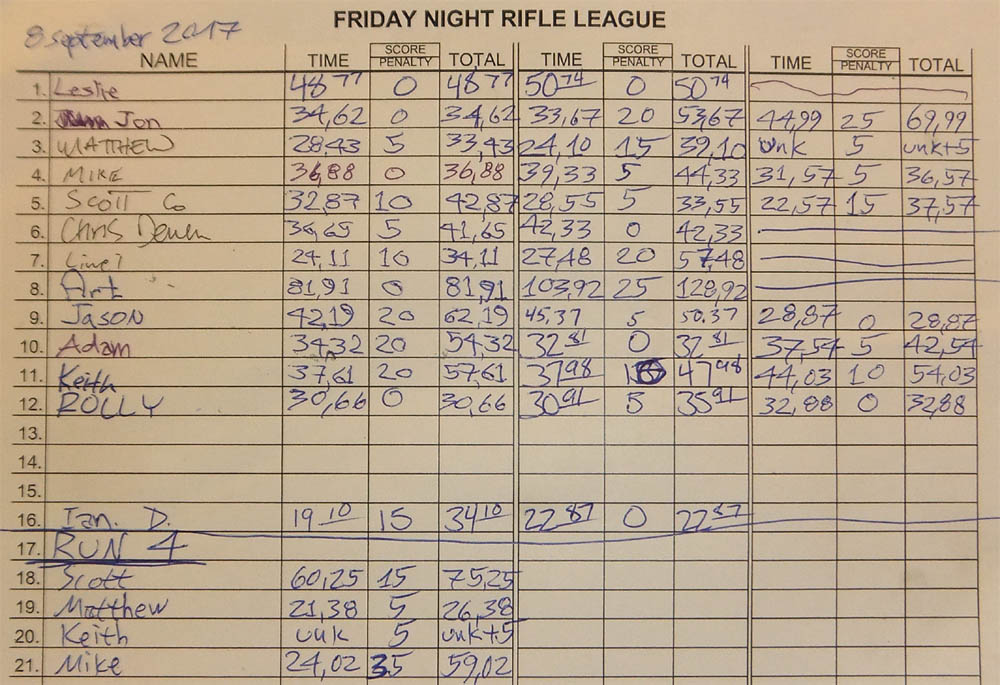 FRIDAY NIGHT RIFLE LEAGUE
8 september 2017
NAME TIME SCORE PENALTY TOTAL TIME SCORE PENALTY TOTAL TIME SCORE PENALTY TOTAL
1. Leslie 48 77 0 48 77 50 74 0 50 74
2. Jon 34,62 0 34,62 33,67 20 53,67 44,99 25 69,99
3. MATTHEW 28,43 5 33,43 24,10 15 39,10 unk 5 unk+5
4. MIKE 36,88 0 36,88 39,33 5 44,33 31,57 5 36,57
5. SCOTT Co 32,87 10 42,87 28,55 5 33,55 22,57 15 37,57
6. Chris 36,65 5 41,65 42,33 0 42,33
7. 24,11 10 34,11 27,48 20 57,48
8. Art 81,91 0 81,91 103,92 25 128,92
9. JASON 42,19 20 62,19 45,37 5 50,37 28,87 0 28,87
10. Adam 34,32 20 54,32 32 81 0 32 81 37,54 5 42,54
11. Keith 37,61 20 57,61 37 98 47 98 44,03 10 54,03
12. ROLLY 30,66 0 30,66 30 91 5 35 91 32,88 0 32,88
13.
14.
15.
16. Ian. D. 19 10 15 34 10 22 87 0 22 87
17. RUN 4
18. Scott 60,25 15 75,25
19. Matthew 21,38 5 26,38
20. Keith unk 5 unk+5
21. Mike 24,02 35 59,02